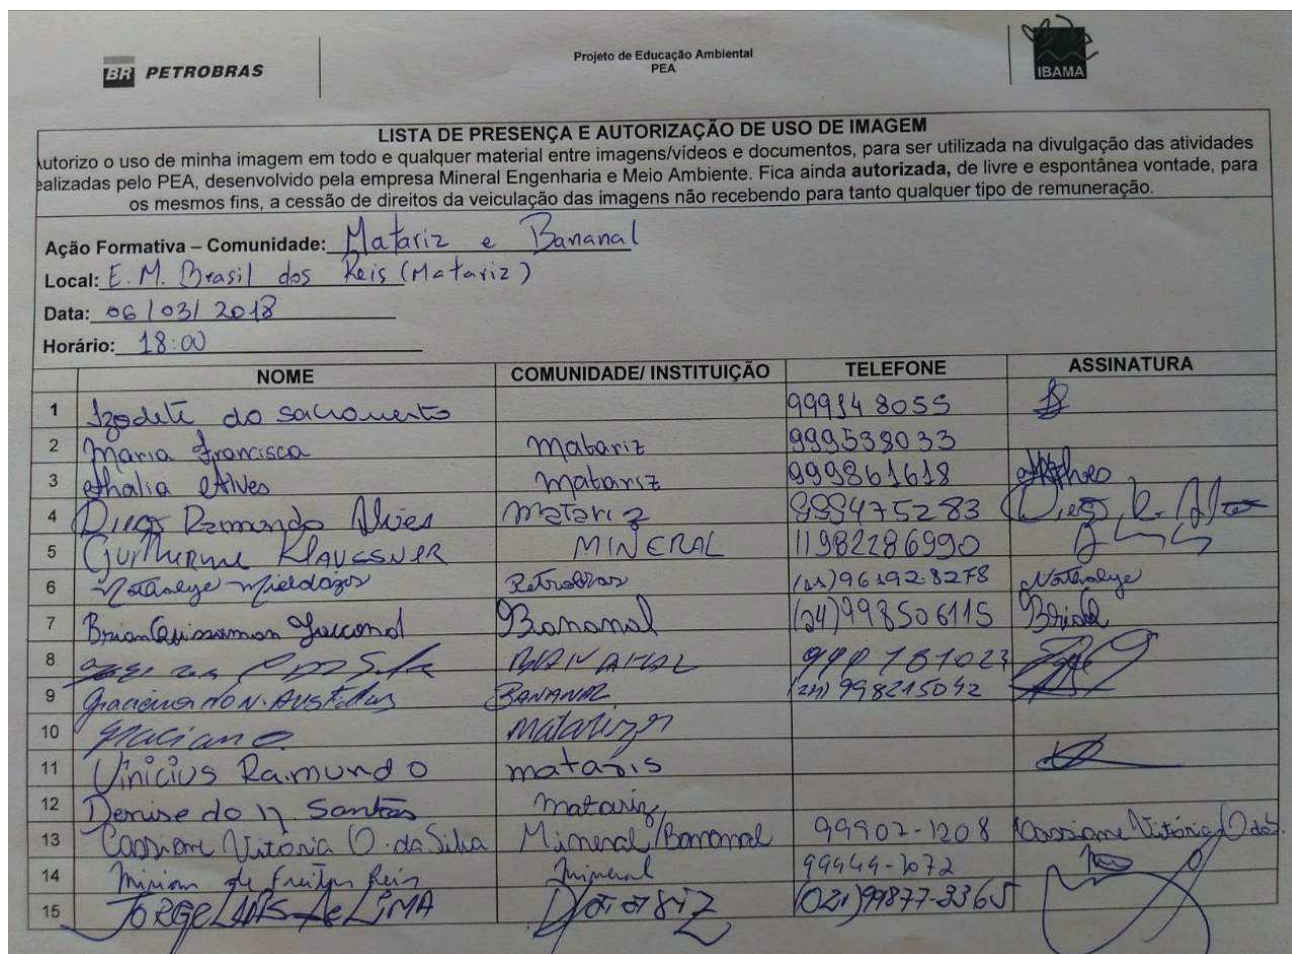 BR PETROBRAS
Projeto de Educação Ambiental
PEA
IBAMA
LISTA DE PRESENÇA E AUTORIZAÇÃO DE USO DE IMAGEM
Autorizo o uso de minha imagem em todo e qualquer material entre imagens/vídeos e documentos, para ser utilizada na divulgação das atividades
ealizadas pelo PEA, desenvolvido pela empresa Mineral Engenharia e Meio Ambiente. Fica ainda autorizada, de livre e espontânea vontade, para
os mesmos fins, a cessão de direitos da veiculação das imagens não recebendo para tanto qualquer tipo de remuneração.
Ação Formativa – Comunidade: Matariz e Bananal
Local: E. M. Brasil dos Reis (Matariz)
Data: 06/03/2018
Horário: 18:00
NOME COMUNIDADE/ INSTITUIÇÃO TELEFONE ASSINATURA
1 Izodete do sacramento 99994 8055
2 Maria Francisca Matariz 999538033
3 Athalia Alves matariz 999861618
4 Diego Raimundo Alves matariz 999475283 Diego R. Alves
5 Guilherme Klaussner MINERAL 11982286990
6 Petrobras (21)96192-8278 Nathalye
7 Brian Bananal (24)998506115 Brian
8 BANANAL
9 BANANAL (24) 998215042
10 Graciano
11 Vinicius Raimundo mataris
12 Denise do N. Santos matariz
13 Cassiane Vitória O. da Silva Mineral/Bananal 99907-1208 Cassiane Vitória O da S.
14 Miriam de Freitas Reis mineral 99949-1072
15 JORGE LUIS de LIMA Matariz (021)99877-3365